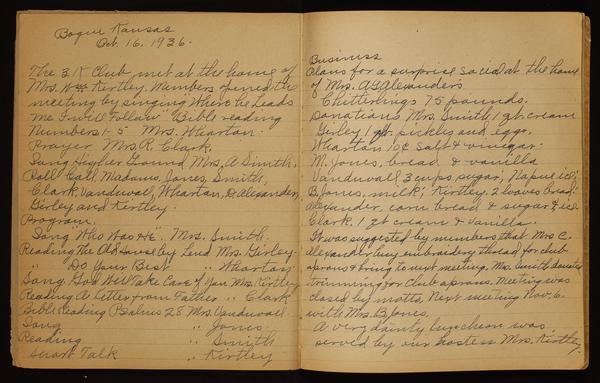 Bogue Kansas
Oct. 16, 1936.
The 3 K Club met at the home of
Mrs. Kirtley, Members opened the
meeting by singing Where he Leads
me I will Follow" Bible reading
Numbers 1-5 Mrs. Wharton.
Prayer Mrs. R. Clark.
Song Higher Ground, Mrs. A Smith.
Roll Call, Madams, Jones, Smith,
Clark, Vanduvall, Wharton, Alexander,
Girley and Kirtley.
Program.
Song "Who Was He". Mrs. Smith.
Reading The Old House by Lend Mrs. Girley.
" Do Your Best " Wharton
Song God Will Take Care of You Mrs. Kirtley
Reading A Letter from Father " Clark
Bible Reading Psalms 28 Mrs. Vanduvall
Song " Jones
Reading " Smith
Short Talk " Kirtley
Business
Plans for a surprise social at the home
of Mrs. A G Alexanders
Chitterlings 75 pounds.
Donations Mrs. Smith 1 qt. cream
Girley 1 qt. pickles and eggs.
Wharton 10¢ salt & vinegar.
M. Jones, bread & vanilla
Vanduvall 3 cups sugar,
B. Jones, milk, Kirtley. 2 loaves bread
Alexander, corn bread & sugar & ice
Clark. 1 qt cream & vanilla.
It was suggested by members that Mrs C.
Alexander buy embroidery thread for club
aprons & bring to next meeting. Mrs. Smith donated
trimming for club aprons. Meeting was
closed by motto, Next meeting Nov. 6.
with Mrs. B Jones.
A very dainty luncheon was
served by our hostess Mrs. Kirtley.